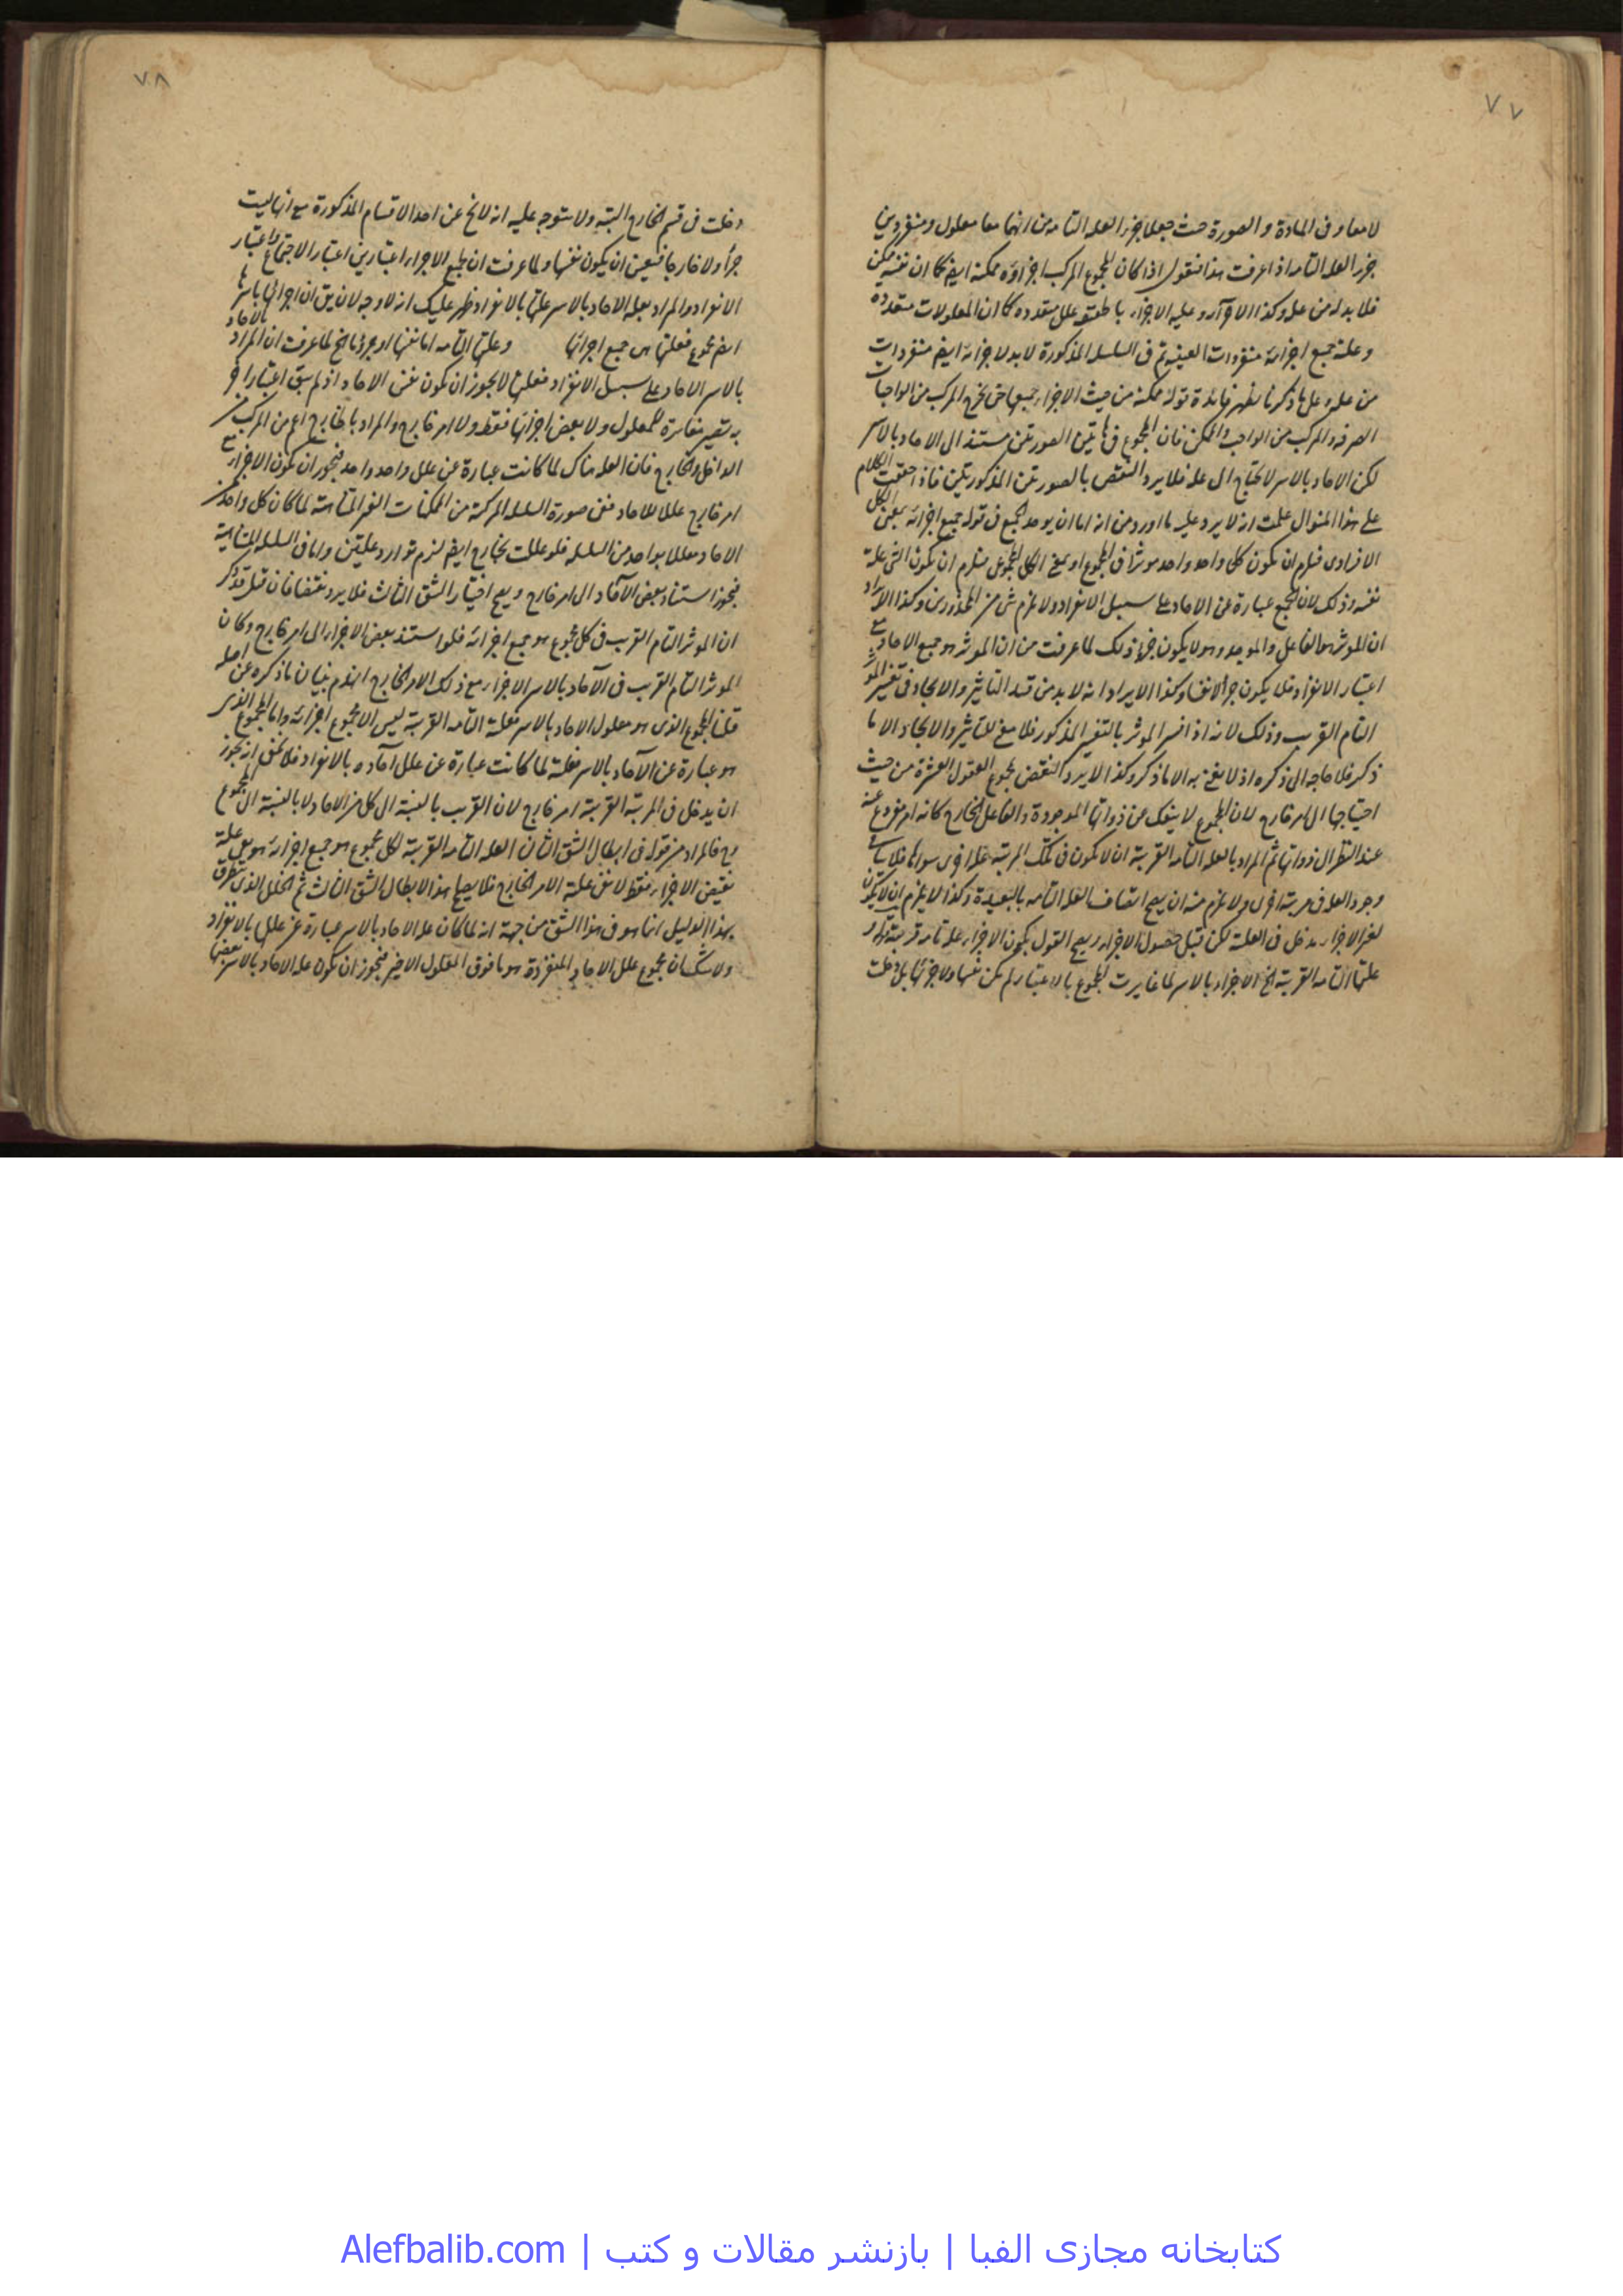 ٧٧
لا معا و فى المادة و الصورة حيث جعلا جزء العلة التامة من انهما معا معلول و منفردين
جزء العلة التامة اذا عرفت هذا فنقول اذا كان المجموع المركب اجزاؤه ممكنة ايضا كما ان نفسه ممكن
فلا بد له من علة و كذا الاجزاء علل متعددة كما ان المعلولات متعددة
و علة جميع اجزائه منفردات السلسلة المذكورة لا بد لاجزائه ايضا منفردات
من علة ما ذكرنا يظهر فائدة قوله ممكنة من حيث الاجزاء جميعها حتى يخرج المركب من الواجبات
الصرفة و المركب من الواجب و الممكن فان المجموع فى هاتين الصورتين مستند الى الاحاد بالاسر
لكن الاحاد بالاسر لا يحتاج الى علة فلا يرد النقض بالصورتين المذكورتين فاذا حققت الكلام
على هذا المنوال علمت انه لا يرد عليه ما اورد من انه اما ان يوجد الجميع فى قوله جميع اجزائه بمعنى الكل
الافرادى فيلزم ان يكون كل واحد واحد موثرا فى المجموع او بمعنى الكل المجموعى فيلزم ان يكون الشىء علة
نفسه و ذلك لان الجميع عبارة عن الاحاد على سبيل الانفراد و لا يلزم شىء من المحذورين و كذا الايراد
ان الموثر هو الفاعل و الموجد و هو لا يكون ذلك لما عرفت من ان الموثر هو جميع الاحاد مع
اعتبار الانفراد فلا يكون جزأ و كذا الايراد انه لا بد من قيد التاثير و الايجاد فى تفسير الموثر
التام القريب و ذلك لانه اذا فسر الموثر بالتفسير المذكور فلا معنى للتاثير و الايجاد الا ما
ذكر فلا حاجة الى ذكره اذ لا يعنى به الا ما ذكر و كذا لا يرد النقض بمجموع العقول العشرة من حيث
احتياجها الى امر خارج لان المجموع لا ينفك عن ذواتها الموجودة و الفاعل الخارج كانه امر مفروغ عنه
عند النظر الى ذواتها ثم المراد بالعلة التامة القريبة ان لا يكون فى تلك المرتبة علة اخرى سواها فلا ينافى
وجود العلة فى مرتبة اخرى و لا يلزم منه ان يصح اتصاف العلة التامة بالبعيدة و كذا لا يلزم ان لا يكون
لغير الاجزاء مدخل فى العلية لكن قبل حصول الاجزاء و يصح القول بكون الاجزاء علة تامة قريبة
علتها التامة القريبة الخ الاجزاء بالاسر لما غايرت المجموع بالاعتبار لم يكن نفسها و لا جزئها بل دخلت
٧٨
دخلت فى قسم الخارج البتة و لا يتوجه عليه انه لا يخ عن احد الاقسام المذكورة مع انها ليست
جزأ و لا خارجا فتعين ان يكون نفسها و لما عرفت ان لجميع الاجزاء اعتبارين اعتبار الاجتماع و اعتبار
الانفراد و المراد بعلة الاحاد بالاسر علتها بالانفراد ظهر عليك انه لا وجه لان يق ان اجزائها باسرها
ايضا مجموع فعلتها هى جميع اجزائها و علتها التامة اما نفسها او جزؤها الخ لما عرفت ان المراد بالاحاد
بالاسر الاحاد على سبيل الانفراد فعلتها لا يجوز ان يكون نفس الاحاد اذ لم يبق اعتبار اخر
به تصير مغايرة للمعلول و لا بعض اجزائها فقط و لا امر خارج و المراد بالخارج اعم من المركب من
الداخل و الخارج فان العلة هناك لما كانت عبارة عن علل واحد واحد فيجوز ان يكون الاجزاء مع
امر خارج عللا للاحاد ففى صورة السلسلة المركبة من الممكنات الغير المتناهية لما كان كل واحد من
الاحاد معللا بواحد من السلسلة فلو عللت بخارج ايضا لزم توارد علتين و اما فى السلسلة المتناهية
فيجوز استناد بعض الآحاد الى امر خارج و يصح اختيار الشق الثالث فلا يرد نقضا فان قيل قد ذكر
ان الموثر التام القريب فى كل مجموع هو جميع اجزائه فلو استند بعض الاجزاء الى امر خارج و كان
الموثر التام القريب فى الآحاد بالاسر الاجزاء مع ذلك الامر الخارج انهدم بنيان ما ذكره عن اصله
قلنا المجموع الذى هو معلول الاحاد بالاسر فعلته التامة القريبة ليس الا مجموع اجزائه و اما المجموع الذى
هو عبارة عن الآحاد بالاسر فعلته لما كانت عبارة عن علل آحاده بالانفراد فلا يخفى انه يجوز
ان يدخل فى المرتبة القريبة امر خارج لان القريب بالنسبة الى كل من الاحاد لا بالنسبة الى المجموع
و ح فالمراد من قوله فى ابطال الشق الثانى العلة التامة القريبة لكل مجموع هو جميع اجزائه هو بعض علة
نقيض الاجزاء فقط لا نفى علية الامر الخارج فلا يصلح هذا لابطال الشق الثالث ثم الخلل الذى يتطرق
بهذا الدليل انما هو فى هذا الشق من جهة انه لما كان علة الاحاد بالاسر عبارة عن عللها بالانفراد
و لا شك ان مجموع علل الاحاد المنفردة هو ما فوق المعلول الاخير فيجوز ان يكون علة الاحاد بالاسر بعضها
کتابخانه مجازی الفبا | بازنشر مقالات و کتب | Alefbalib.com